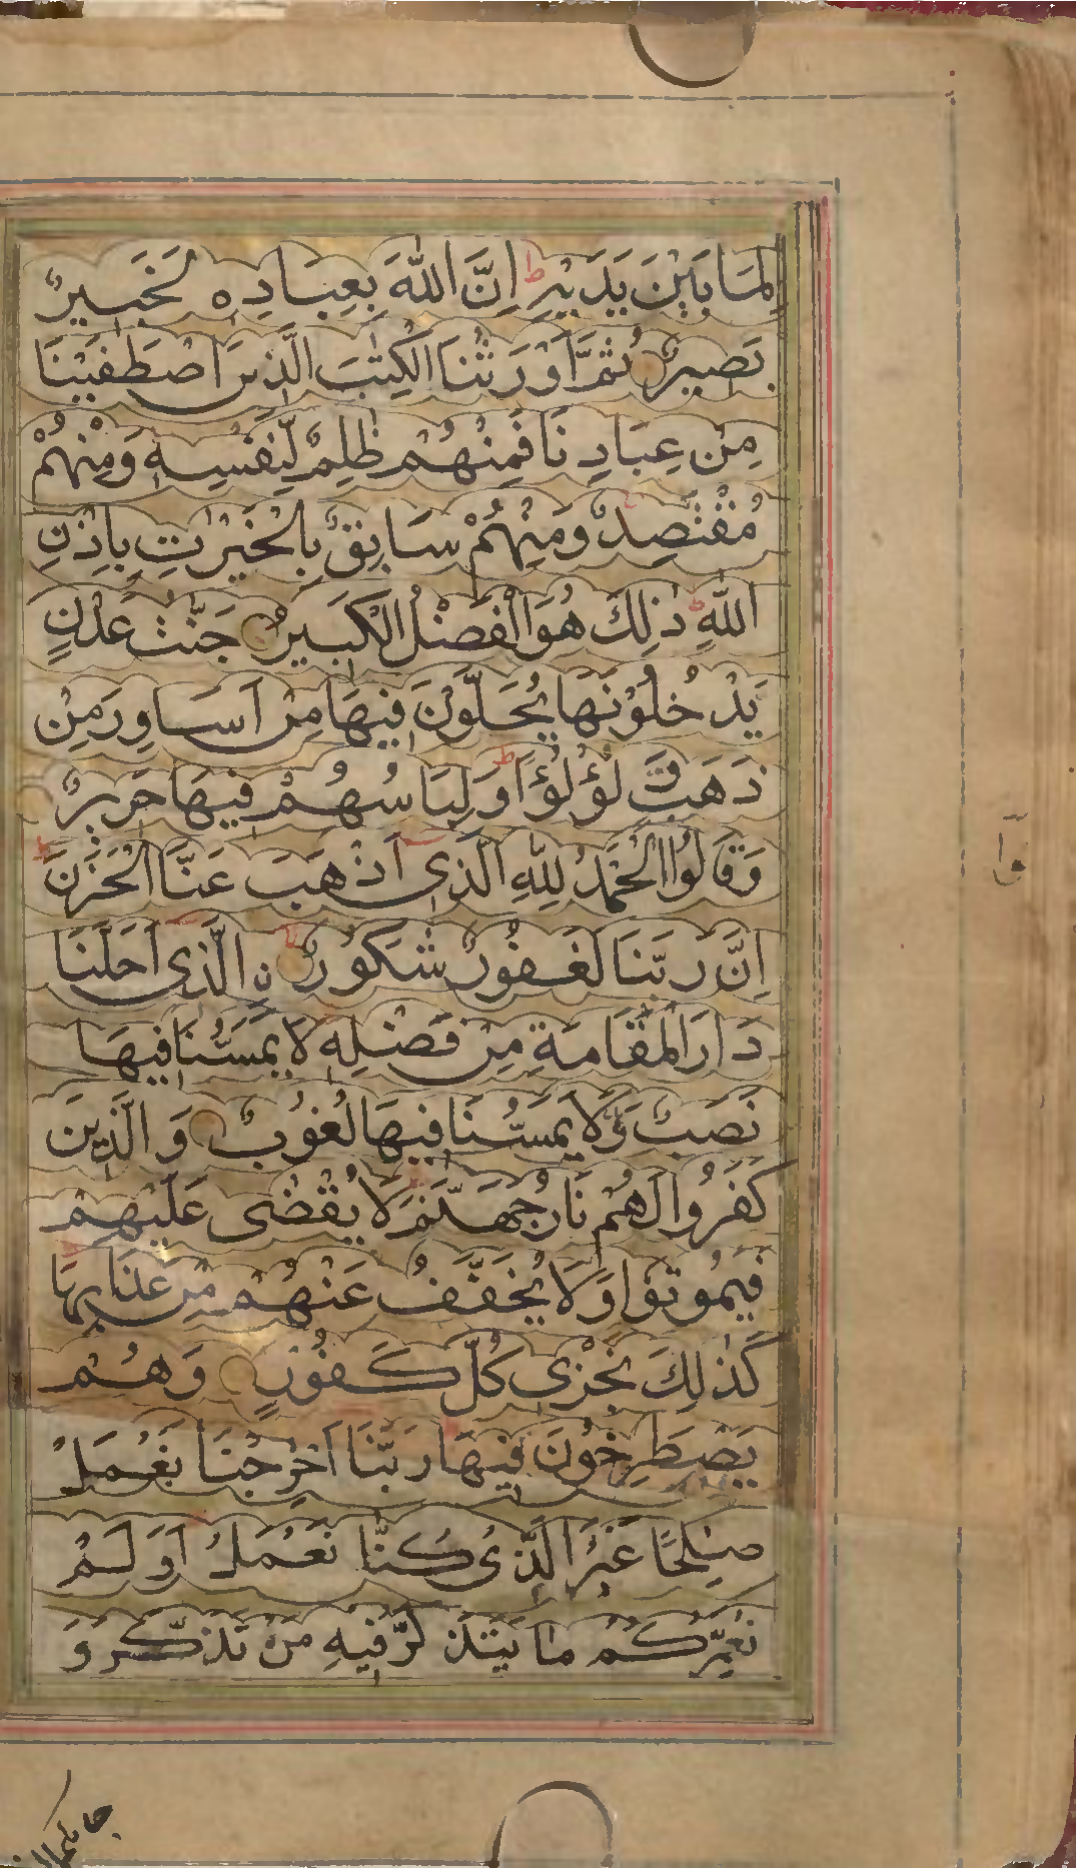 لِمَا بَيْنَ يَدَيْهِ ۭط اِنَّ اللّٰهَ بِعِبَادِهٖ لَخَبِيْرٌ
بَصِيْرٌ ثُمَّ اَوْرَثْنَا الْكِتٰبَ الَّذِيْنَ اصْطَفَيْنَا
مِنْ عِبَادِنَا فَمِنْهُمْ ظٰلِمٌ لِّنَفْسِهٖ وَمِنْهُمْ
مُقْتَصِدٌ وَمِنْهُمْ سَابِقٌ بِالْخَيْرٰتِ بِاِذْنِ
اللّٰهِ ط ذٰلِكَ هُوَ الْفَضْلُ الْكَبِيْرُ جَنّٰتُ عَدْنٍ
يَدْخُلُوْنَهَا يُحَلَّوْنَ فِيْهَا مِنْ اَسَاوِرَ مِنْ
ذَهَبٍ وَّ لُؤْلُؤًا ط وَلِبَاسُهُمْ فِيْهَا حَرِيْرٌ
وَقَالُوا الْحَمْدُ لِلّٰهِ الَّذِىْ اَذْهَبَ عَنَّا الْحَزَنَ ط
اِنَّ رَبَّنَا لَغَفُوْرٌ شَكُوْرُ ۨ الَّذِىْ اَحَلَّنَا
دَارَ الْمُقَامَةِ مِنْ فَضْلِهٖ لَا يَمَسُّنَا فِيْهَا
نَصَبٌ وَّلَا يَمَسُّنَا فِيْهَا لُغُوْبٌ وَالَّذِيْنَ
كَفَرُوْا لَهُمْ نَارُ جَهَنَّمَ لَا يُقْضٰى عَلَيْهِمْ
فَيَمُوْتُوْا وَلَا يُخَفَّفُ عَنْهُمْ مِّنْ عَذَابِهَا
كَذٰلِكَ نَجْزِىْ كُلَّ كَفُوْرٍ وَهُمْ
يَصْطَرِخُوْنَ فِيْهَا رَبَّنَا اَخْرِجْنَا نَعْمَلْ
صٰلِحًا غَيْرَ الَّذِىْ كُنَّا نَعْمَلُ اَوَلَمْ
نُعَمِّرْكُمْ مَا يَتَذَكَّرُ فِيْهِ مَنْ تَذَكَّرَ وَ
وّا